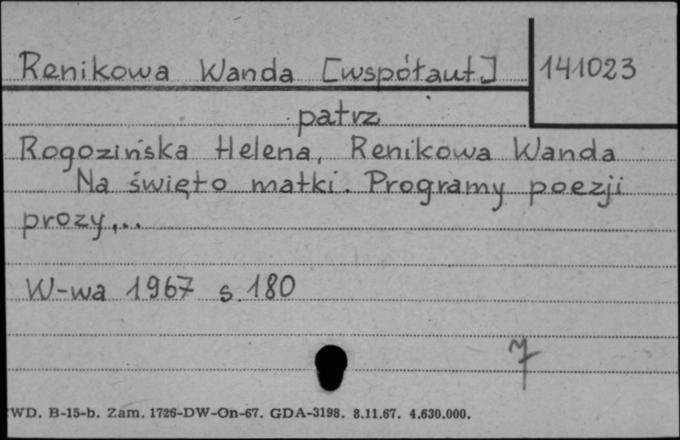 Renikowa Wanda [współaut] 141023
patrz
Rogozińska Helena, Renikowa Wanda
Na święto matki. Programy poezji
prozy,..
W-wa 1967 s. 180
7
WD. B-15-b. Zam. 1726-DW-On-67. GDA-3198. 8.11.67. 4.630.000.